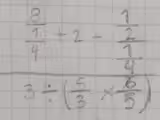 8/(1/4) ÷ 2 - (1/2)/(1/4)
3 ÷ (5/3 × 6/5)